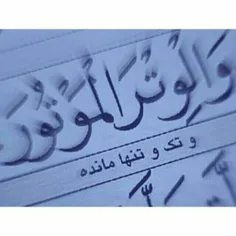 وَالْوِتْرَ الْمَوْتُورَ
و تک و تنها مانده